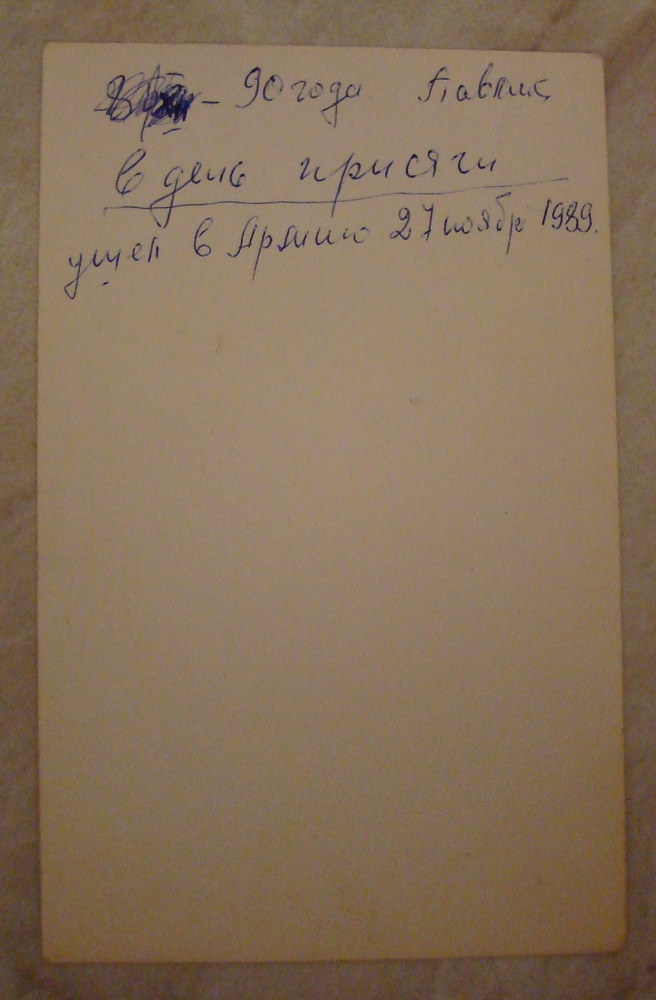 – 90 года Павлик
в день присяги
ушел в Армию 27 ноябр 1989.